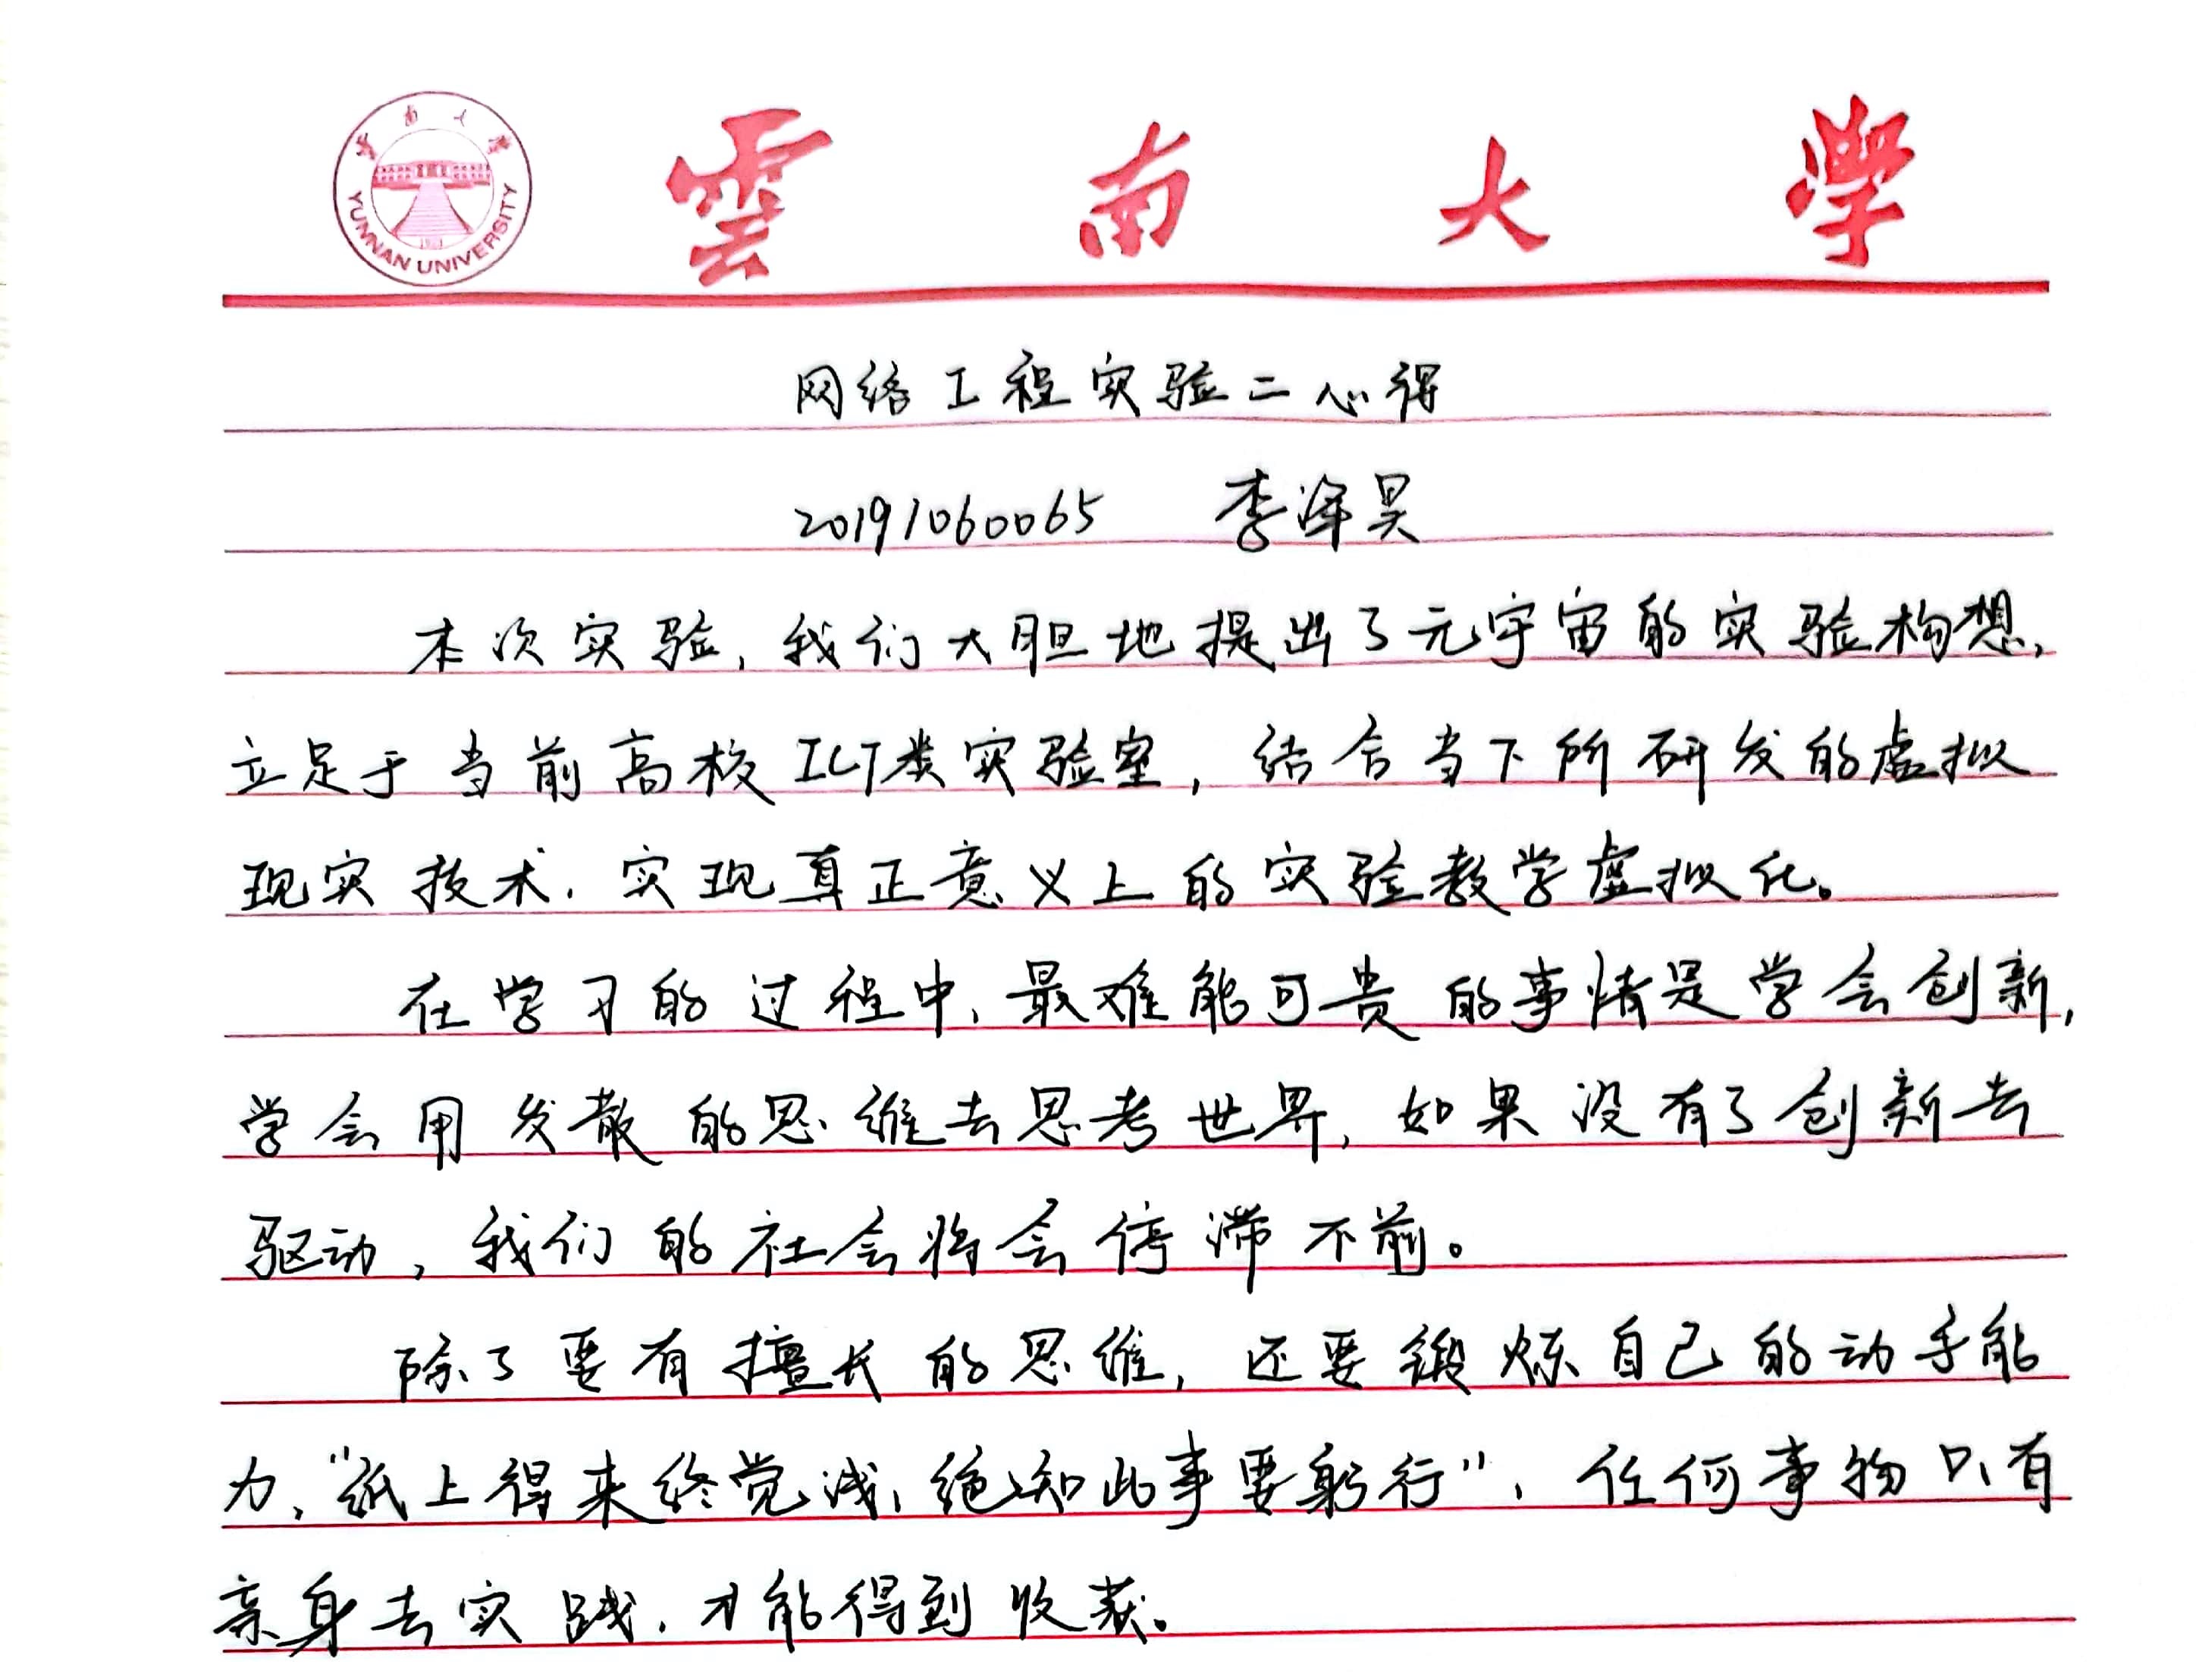 雲南大學
YUNNAN UNIVERSITY
网络工程实验二心得
20191060065 李泽昊
本次实验,我们大胆地提出了元宇宙的实验构想,
立足于当前高校ICT类实验室,结合当下所研发的虚拟
现实技术,实现真正意义上的实验教学虚拟化。
在学习的过程中,最难能可贵的事情是学会创新,
学会用发散的思维去思考世界,如果没有了创新去
驱动,我们的社会将会停滞不前。
除了要有擅长的思维,还要锻炼自己的动手能
力,“纸上得来终觉浅,绝知此事要躬行”,任何事物只有
亲身去实践,才能得到收获。